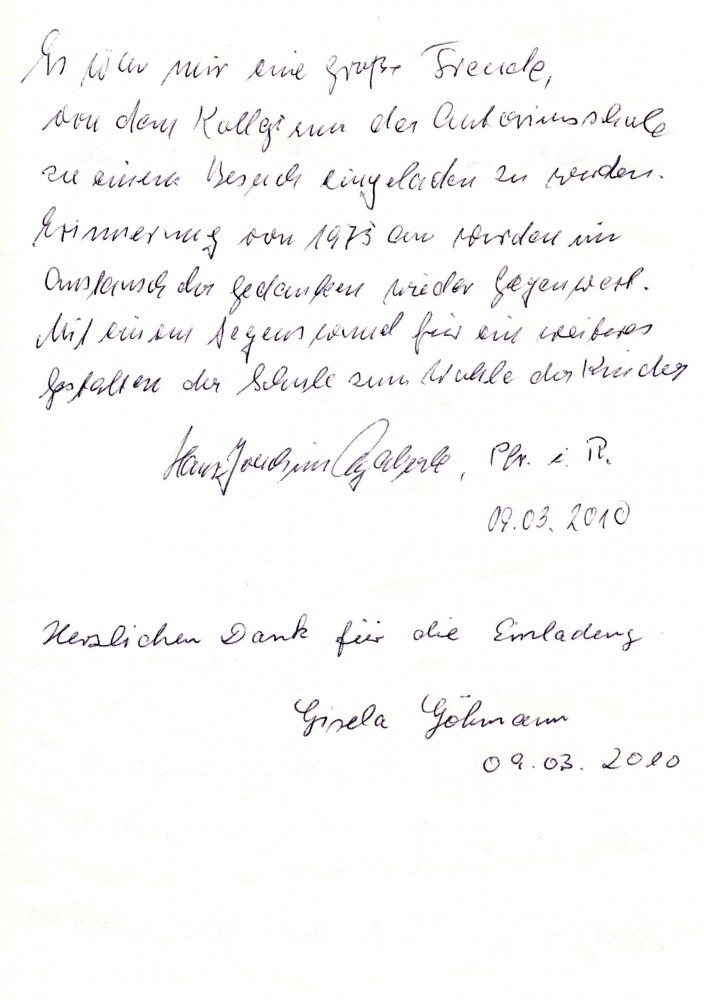 Es war mir eine große Freude,
von dem Kollegium der Antoniusschule
zu einem Besuch eingeladen zu werden.
Erinnerung von 1975 an wurden im
Austausch der Gedanken wieder Gegenwart.
Mit einem Segenswunsch für ein weiteres
Gestalten der Schule zum Wohle der Kinder
Hans Joachim Pfr. i. R.
09.03. 2010
Herzlichen Dank für die Einladung
Gisela Göhmann
09.03. 2010